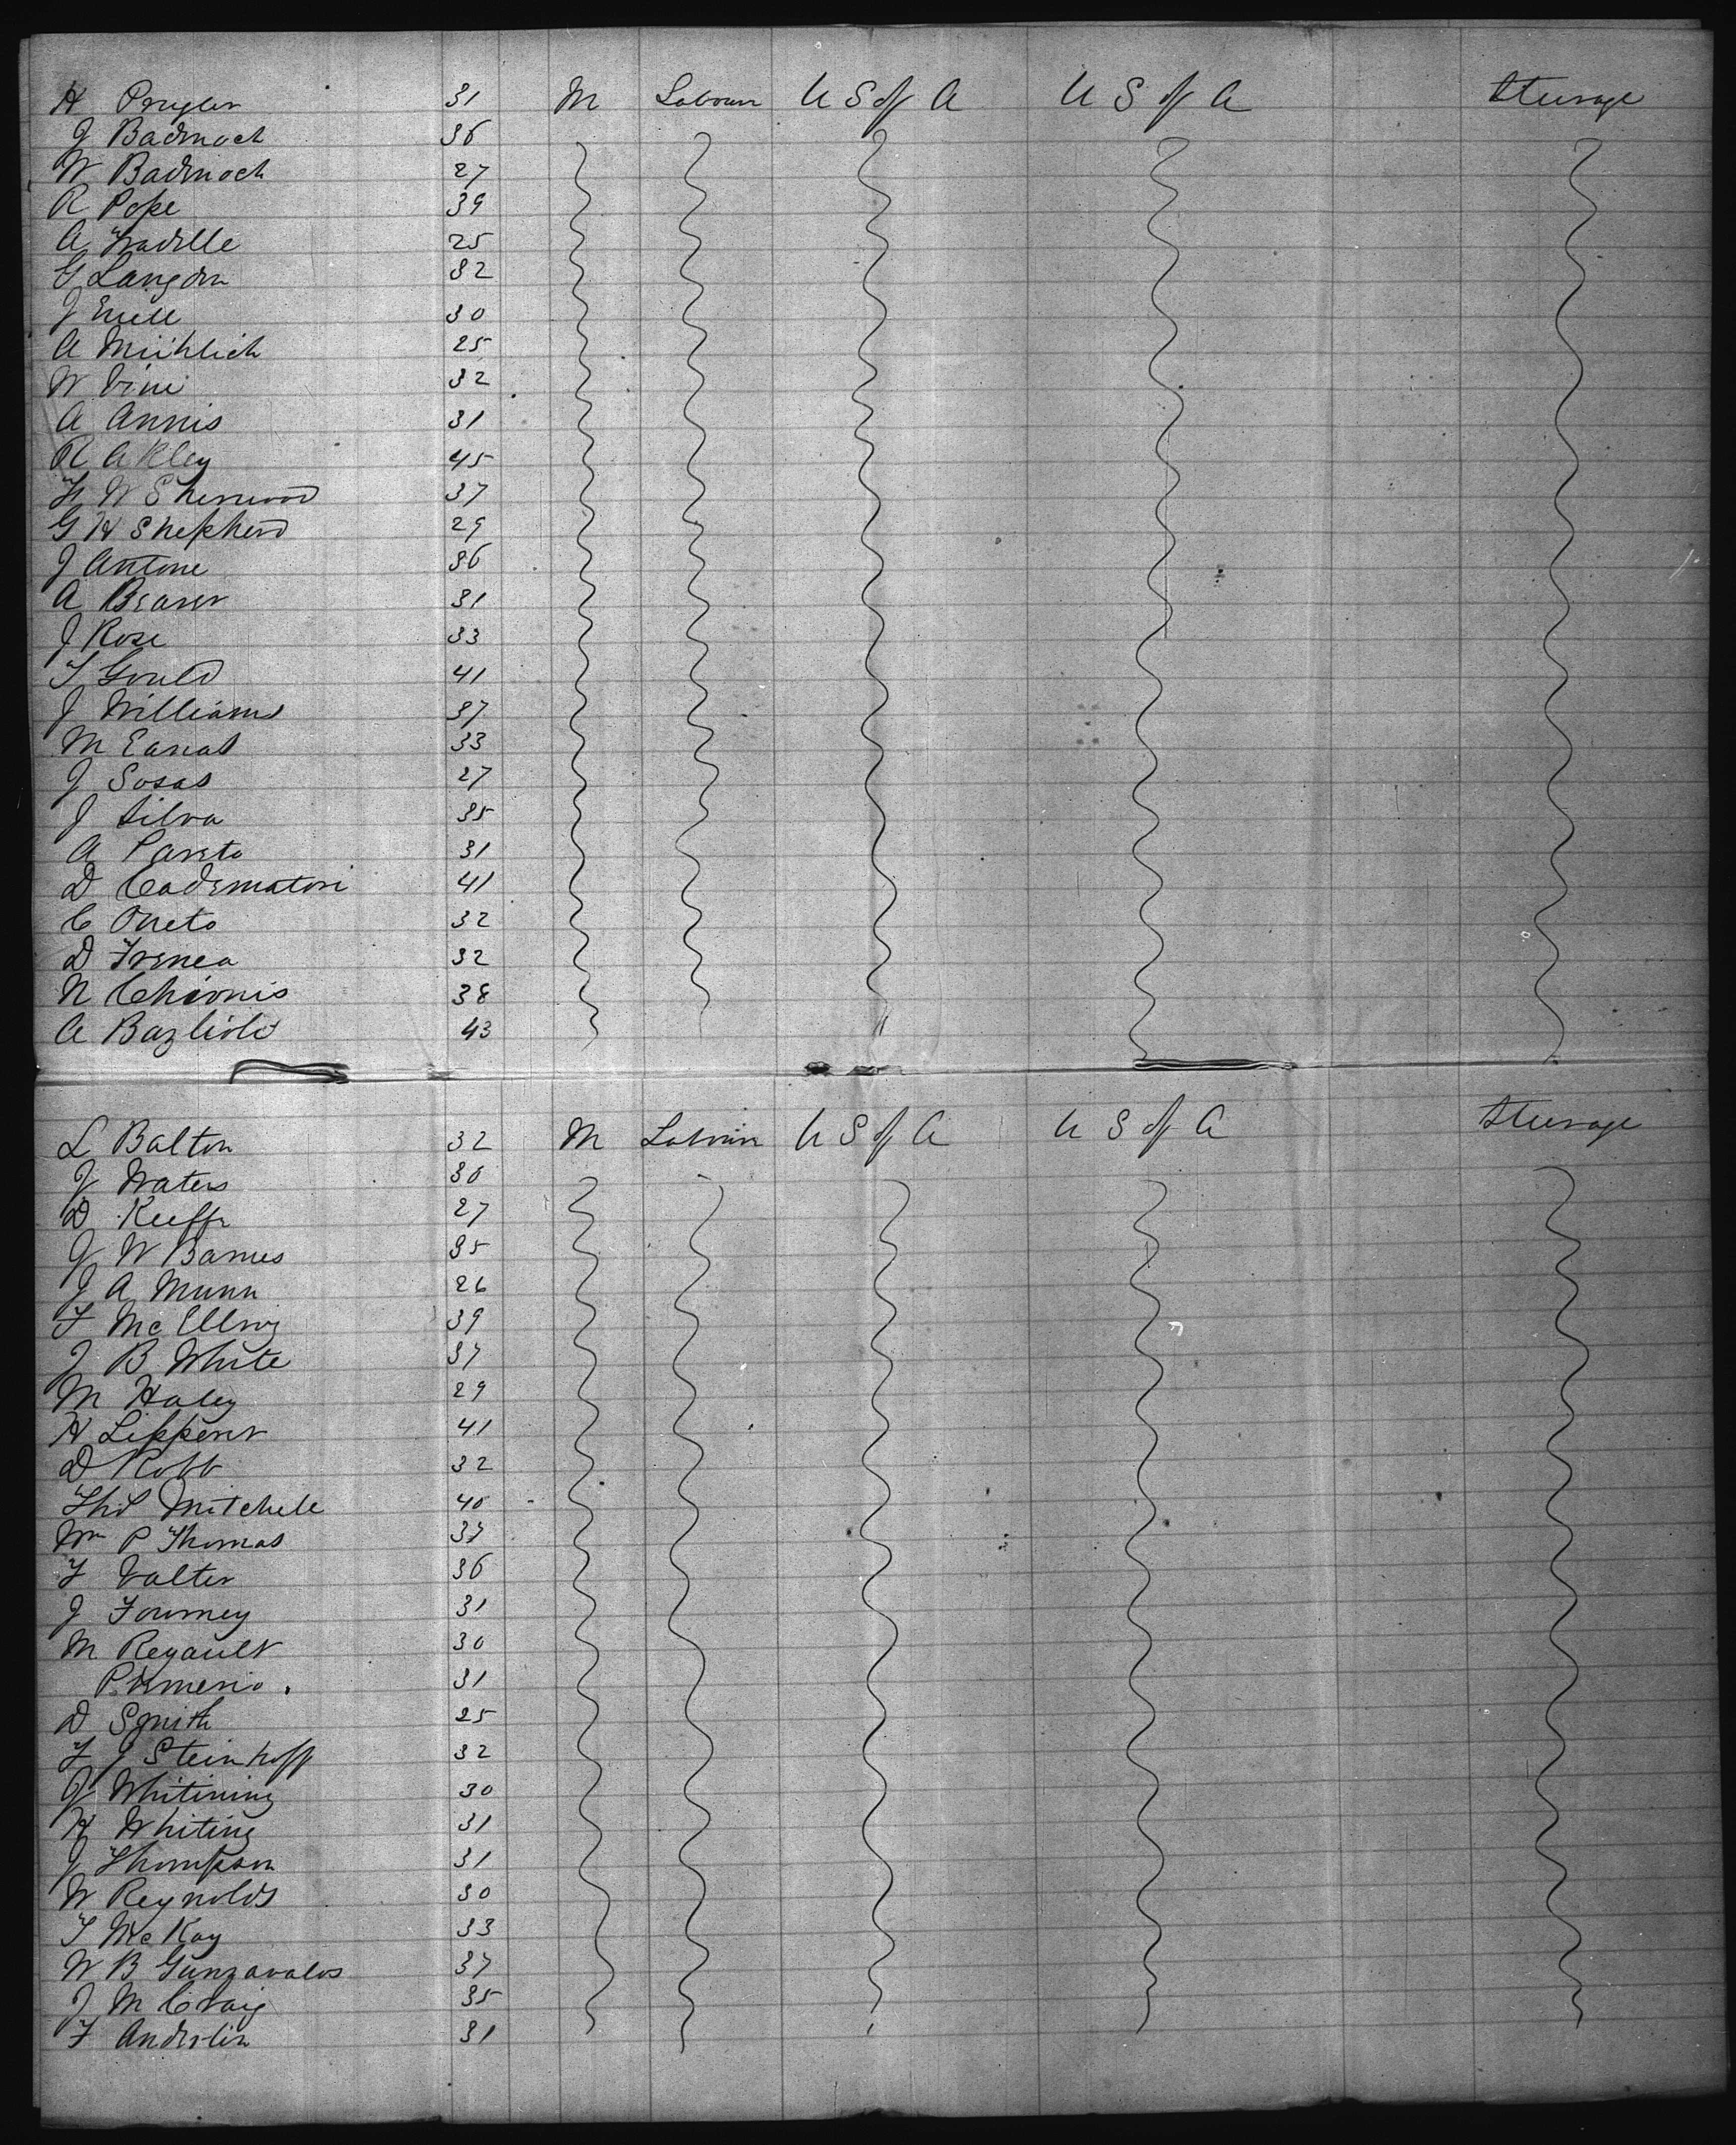 H 31 M Labourer U S of A U S of A Steerage
J Badenoch 36
W Badenoch 27
R Pope 39
A 25
G Langdon 32
J 30
A Mühlich 25
W 32
A Annis 31
R A Kley 45
F W Sherwood 37
G H Shepherd 29
J Antone 36
A Beaver 31
J Rose 33
T Gould 41
J Williams 37
M 33
J Sosas 27
J Silva 35
A Pareto 31
D Cadematori 41
C Oneto 32
D Frenea 32
N Chionis 38
A 43
L Balton 32 M Labourer U S of A U S of A Steerage
J Waters 30
D Keeffe 27
J W Barnes 35
J A Munn 26
F McEllroy 39
J B White 37
M Haley 29
H Lipperer 41
D Robb 32
Mitchell 40
Wm P Thomas 37
F Valter 36
J Fourney 31
M Regault 30
31
D Smith 25
F J Steinhoff 32
J Whitining 30
H Whiting 31
J Thompson 31
W Reynolds 30
T McKay 33
W B Gunzavalos 37
J M Craig 35
F Anderlin 31